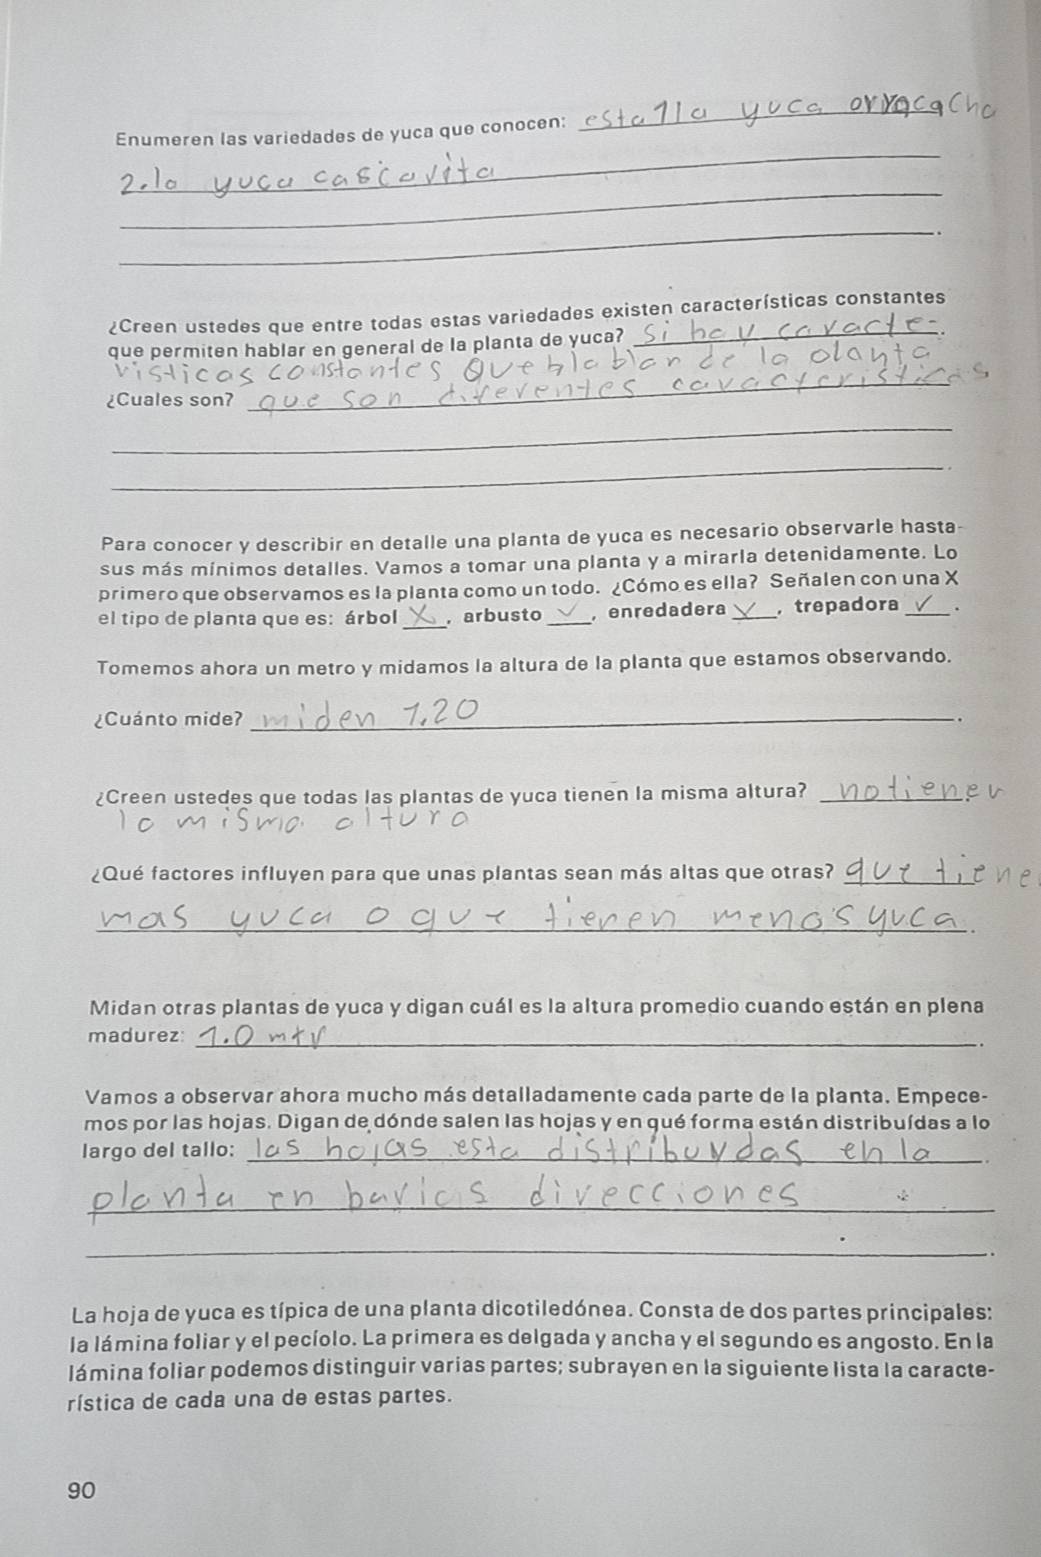 Enumeren las variedades de yuca que conocen: esta 1 la yuca arracacha
2. la yuca casicavita
¿Creen ustedes que entre todas estas variedades existen características constantes
que permiten hablar en general de la planta de yuca? Si hay caracte-
risticas constantes que hablablan de la planta
¿Cuales son? que son diferentes caracteristicas
Para conocer y describir en detalle una planta de yuca es necesario observarle hasta-
sus más mínimos detalles. Vamos a tomar una planta y a mirarla detenidamente. Lo
primero que observamos es la planta como un todo. ¿Cómo es ella? Señalen con una X
el tipo de planta que es: árbol X, arbusto ✓, enredadera ✓, trepadora ✓.
Tomemos ahora un metro y midamos la altura de la planta que estamos observando.
¿Cuánto mide? miden 1.20.
¿Creen ustedes que todas las plantas de yuca tienen la misma altura? no tienen
la misma altura
¿Qué factores influyen para que unas plantas sean más altas que otras? que tiene
mas yuca o que tienen menos yuca.
Midan otras plantas de yuca y digan cuál es la altura promedio cuando están en plena
madurez: 1.0 mtr.
Vamos a observar ahora mucho más detalladamente cada parte de la planta. Empece-
mos por las hojas. Digan de dónde salen las hojas y en qué forma están distribuídas a lo
largo del tallo: las hojas esta distribuydas en la.
planta en barias direcciones
La hoja de yuca es típica de una planta dicotiledónea. Consta de dos partes principales:
la lámina foliar y el pecíolo. La primera es delgada y ancha y el segundo es angosto. En la
lámina foliar podemos distinguir varias partes; subrayen en la siguiente lista la caracte-
rística de cada una de estas partes.
90